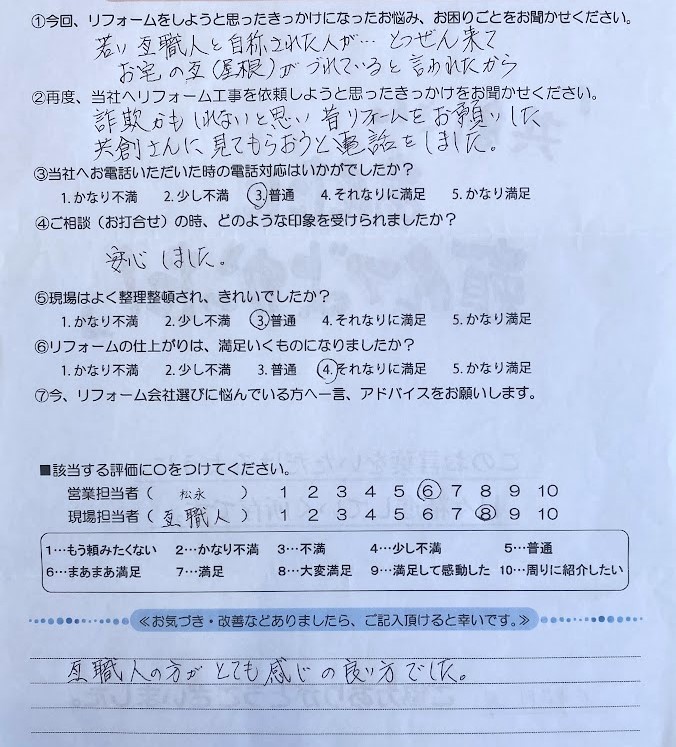 ①今回、リフォームをしようと思ったきっかけになったお悩み、お困りごとをお聞かせください。
若い瓦職人と自称された人が… とつぜん来て
お宅の瓦(屋根)がづれていると言われたから
②再度、当社へリフォーム工事を依頼しようと思ったきっかけをお聞かせください。
詐欺かもしれないと思い昔リフォームをお願いした
共創さんに見てもらおうと電話をしました。
③当社へお電話いただいた時の電話対応はいかがでしたか？
1.かなり不満 2.少し不満 3.普通 4.それなりに満足 5.かなり満足
④ご相談（お打合せ）の時、どのような印象を受けられましたか？
安心しました。
⑤現場はよく整理整頓され、きれいでしたか？
1.かなり不満 2.少し不満 3.普通 4.それなりに満足 5.かなり満足
⑥リフォームの仕上がりは、満足いくものになりましたか？
1.かなり不満 2.少し不満 3.普通 4.それなりに満足 5.かなり満足
⑦今、リフォーム会社選びに悩んでいる方へ一言、アドバイスをお願いします。
■該当する評価に〇をつけてください。
営業担当者（ 松永 ） 1 2 3 4 5 6 7 8 9 10
現場担当者（ 瓦職人 ） 1 2 3 4 5 6 7 8 9 10
1…もう頼みたくない 2…かなり不満 3…不満 4…少し不満 5…普通
6…まあまあ満足 7…満足 8…大変満足 9…満足して感動した 10…周りに紹介したい
≪お気づき・改善などありましたら、ご記入頂けると幸いです。≫
瓦職人の方がとても感じの良い方でした。